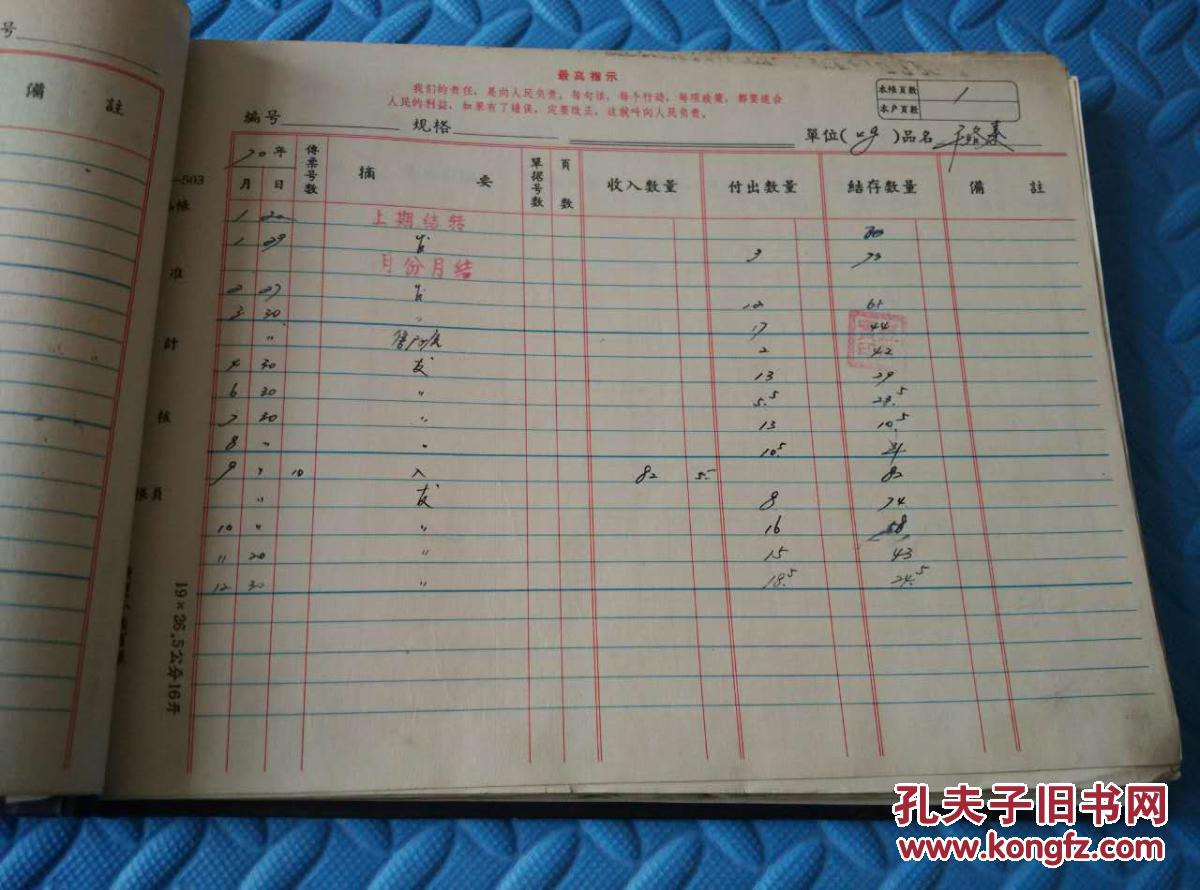 号
備 註
最高指示
我们的责任，是向人民负责。每句话，每个行动，每项政策，都要适合
人民的利益，如果有了错误，定要改正，这就叫向人民负责。
本帳頁数 1
本户頁数
編号 規格 單位(kg)品名
70年 傳票号数 摘 要 單据号数 頁数 收入数量 付出数量 結存数量 備 註
月 日
-503
帳
准
計
核
員
19×26.5公分16开
1 20 上期结转
1 29 发 3 73
月份月结
2 27 发 12 61
3 30 〃 17 44
〃 2 42
4 30 发 13 29
6 30 〃 5.5 23.5
7 30 〃 13 10.5
8 〃 〃 10.5
9 〃 10 入 82 55 82
〃 发 8 74
10 〃 〃 16 58
11 20 〃 15 43
12 30 〃 18.5 24.5
孔夫子旧书网
www.kongfz.com